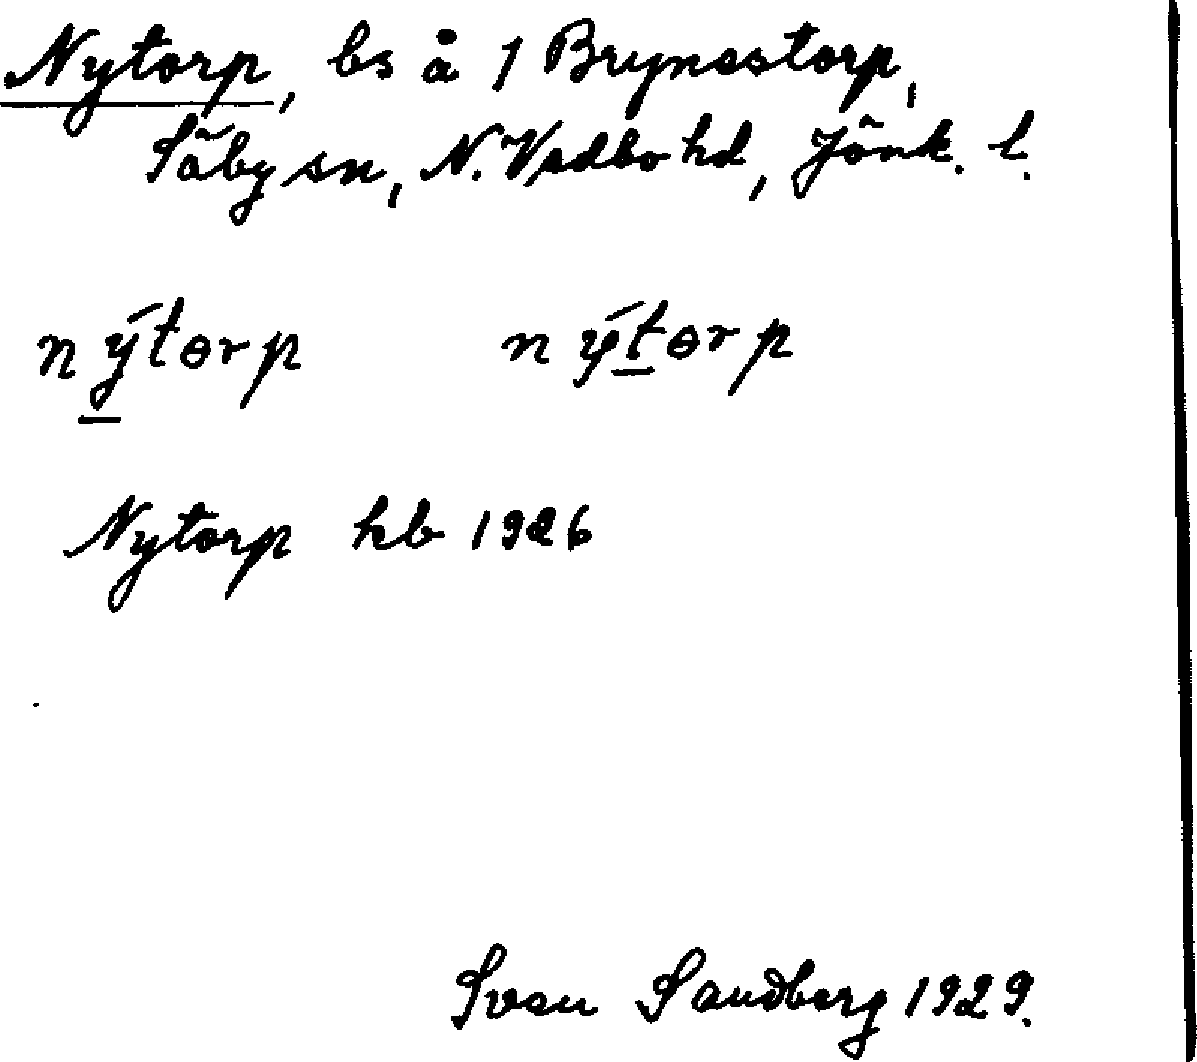 Nytorp, bs å 1 Brynestorp,
Säby sn, N. Vedbo hd, Jönk. l.
ný̲tɵrp nýt̲ɵrp
Nytorp hb 1926
Sven Sandberg 1929.